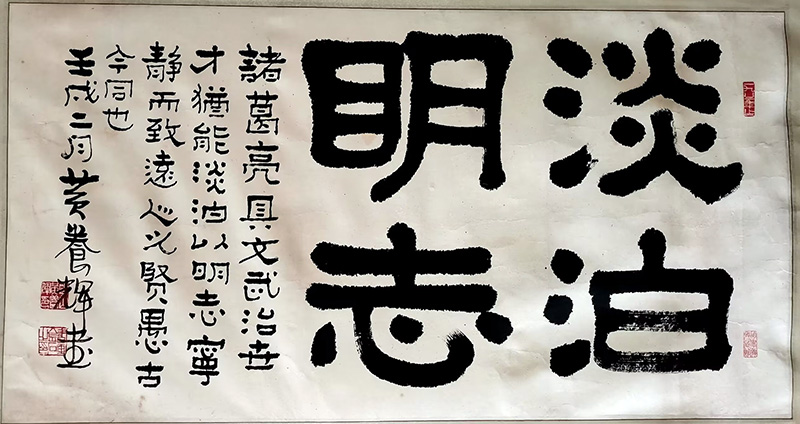 淡泊
眀志
諸葛亮具文武治世
才猶能淡泊以明志寧
静而致遠心之賢愚古
今同也
壬戌二月黃養輝書